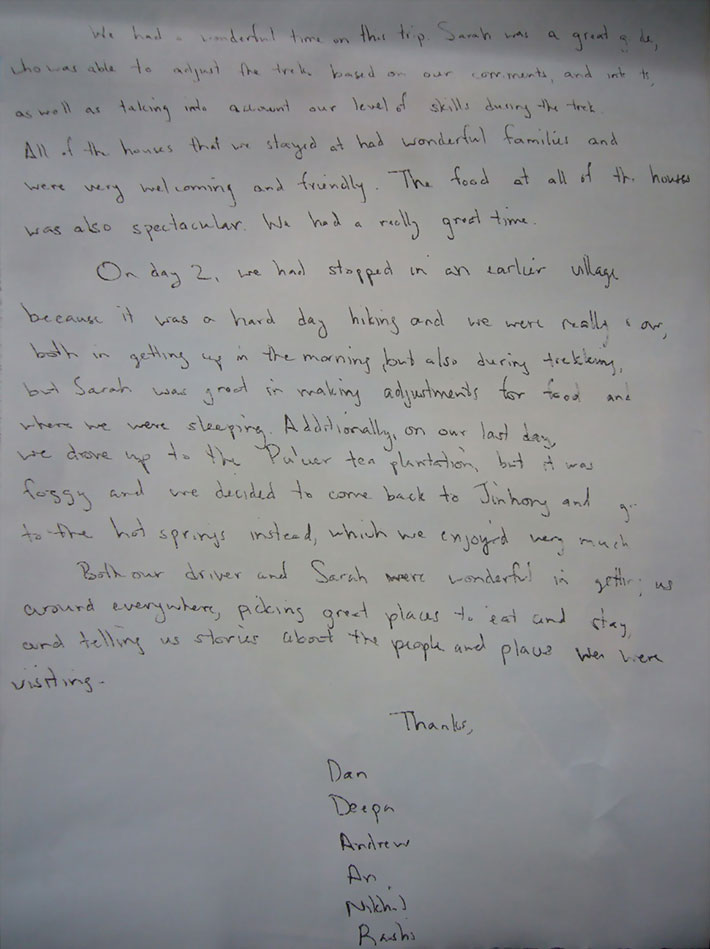 We had a wonderful time on this trip. Sarah was a great
who was able to adjust the trek based on our comments, and
as well as taking into account our level of skills during the trek.
All of the houses that we stayed at had wonderful families and
were very welcoming and friendly. The food at all of the houses
was also spectacular. We had a really great time.
On day 2, we had stopped in an earlier village
because it was a hard day hiking and we were really
both in getting up in the morning, but also during trekking,
but Sarah was great in making adjustments for food and
where we were sleeping. Additionally, on our last day,
we drove up to the Pu'uer tea plantation, but it was
foggy and we decided to come back to Jinhong and
to the hot springs instead, which we enjoy'd very much
Both our driver and Sarah were wonderful in getting us
around everywhere, picking great places to eat and stay,
and telling us stories about the people and places were
visiting.
Thanks,
Dan
Deepa
Andrew
Nikhil
Rashi